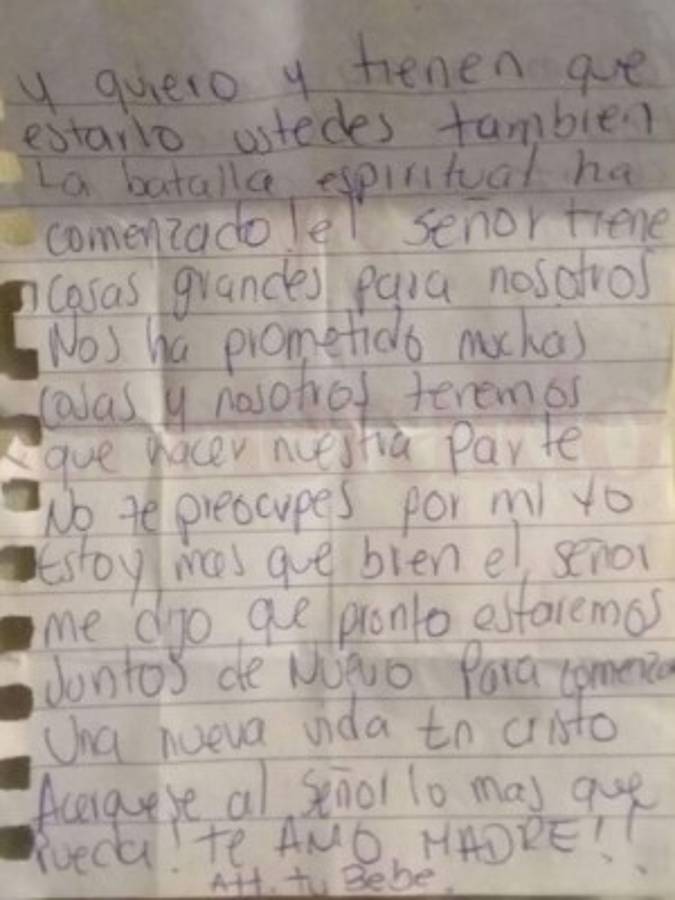 y quiero y tienen que
estarlo ustedes tambien
La batalla espiritual ha
comenzado! el señor tiene
cosas grandes para nosotros
Nos ha prometido muchas
cosas y nosotros tenemos
que hacer nuestra parte
No te preocupes por mi yo
Estoy mas que bien el señor
me dijo que pronto estaremos
Juntos de Nuevo Para comenza
Una nueva vida En cristo
Acerquese al Señor lo mas que
Pueda! te AMO MADRE!!
Att. tu Bebe.